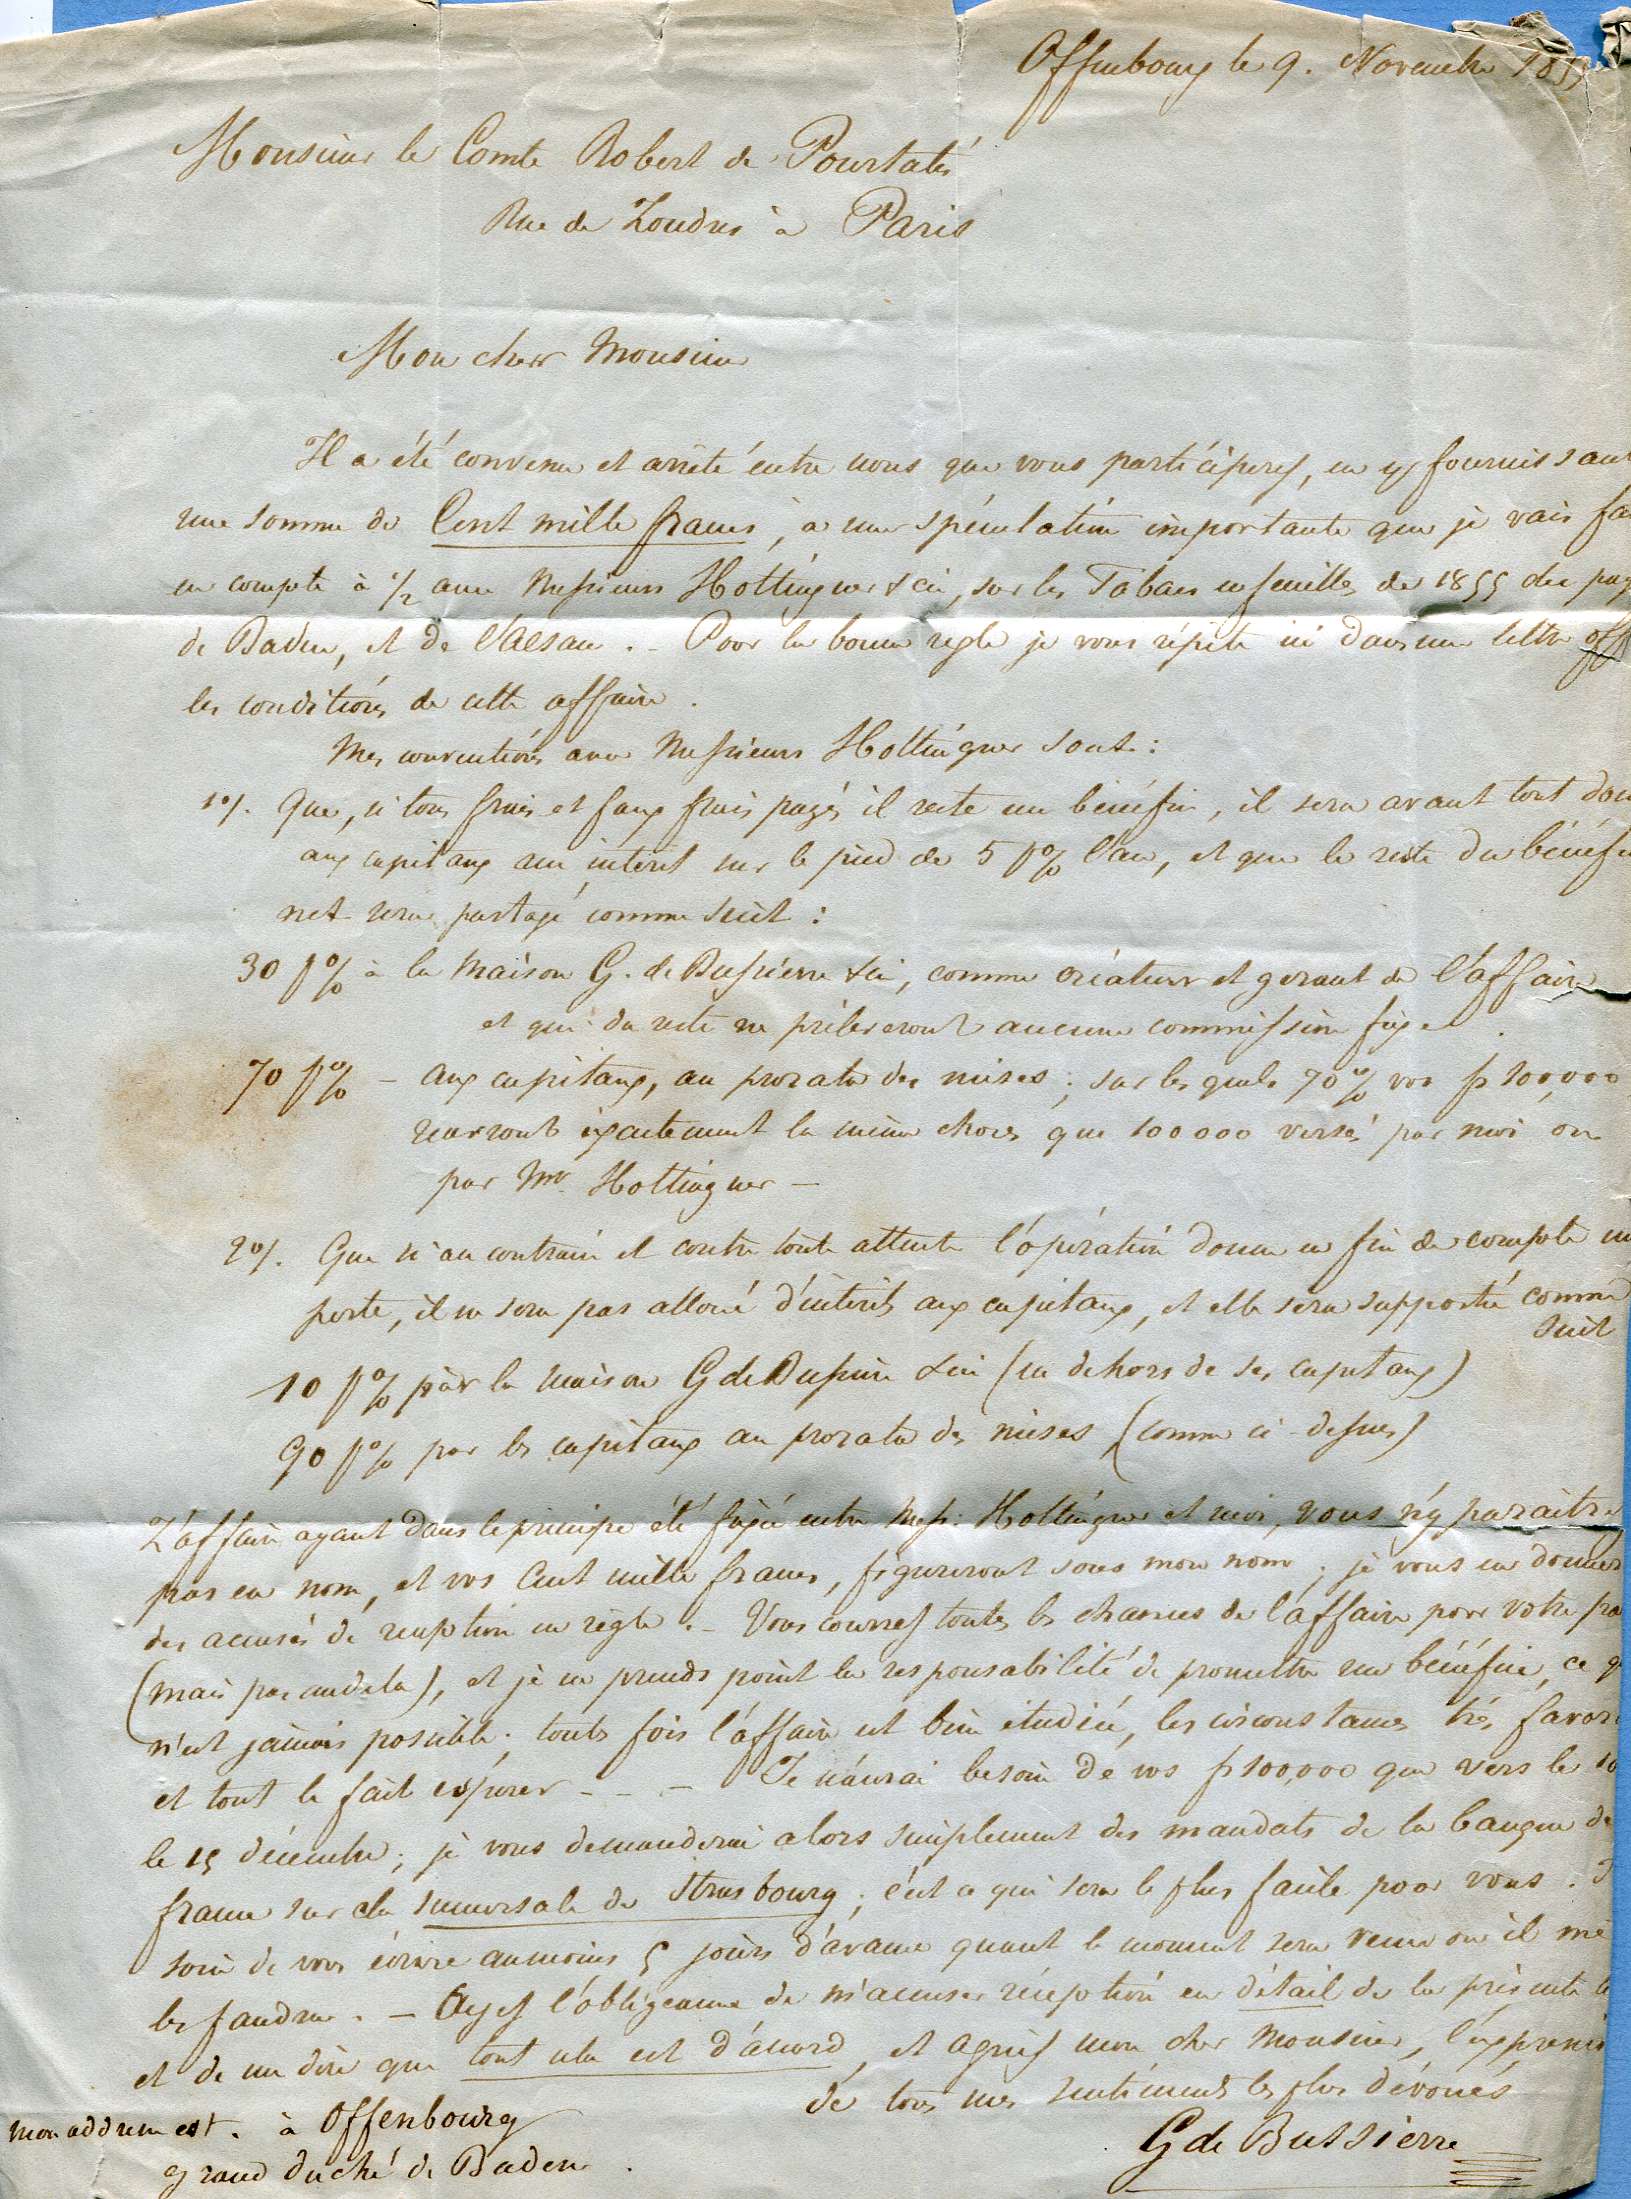 Offenbourg le 9. Novembre 185
Monsieur le Comte Robert de Pourtalès
Rue de Londres à Paris
Mon cher Monsieur
Il a été convenu et arrêté entre nous que vous participerez, en y fournissant
une somme de Cent mille francs, à une spéculation importante que je vais fa
en compte à 1/2 avec Messieurs Hottinguer & cie, sur les Tabacs en feuilles de 1855 du pays
de Baden, et de l'Alsace. - Pour la bonne règle je vous répète ici dans une lettre off
les conditions de cette affaire.
Mes conventions avec Messieurs Hottinguer sont :
1°/. Que, si tous frais et faux frais payés il reste un bénéfice, il sera avant tout don
aux capitaux un intérêt sur le pied de 5 p% l'an, et que le reste du bénéfi
net sera partagé comme suit :
30 p% à la Maison G. de Bussierre & cie, comme créateur et gerant de l'affaire
et qui du reste ne prélèveront aucune commission fixe.
70 p% - aux capitaux, au prorata des mises ; sur les quels 70 % vos fr 100,000
recevront exactement la même chose, que 100000 versés par moi ou
par Mr. Hottinguer -
2°/. Que si au contraire et contre toute attente l'opération donne en fin de compte un
perte, il ne sera pas alloué d'intérêts aux capitaux, et elle sera supportée comme
suit
10 p% par la maison G de Bussierre & cie (en dehors de ses capitaux)
90 p% par les capitaux au prorata des mises (comme ci-dessus)
L'affaire ayant dans le principe été fixée entre Mess: Hottinguer et moi, vous n'y paraitre
pas en nom, et vos Cent mille francs, figureront sous mon nom ; je vous en donner
des accusés de reception en règle. - Vous courrez toutes les chances de l'affaire pour votre pa
(mais pas audela), et je ne prends point la responsabilité de promettre un bénéfice, ce q
n'est jamais possible ; toute fois l'affaire est bien étudiée, les circonstances très favora
et tout le fait espérer - - - Je n'aurai besoin de vos fr 100,000 que vers le 10
le 15 décembre ; je vous demanderai alors simplement des mandats de la banque de
france sur la succursale de Strasbourg ; c'est ce qui sera le plus facile pour vous.
soin de vous écrire aumoins 5 jours d'avance quant le moment sera venu où il me
les faudra. - Ayez l'obligeance de m'accuser réception en détail de la présente
et de me dire que tout cela est d'accord, et agréez mon cher Monsieur, l'expressi
de tous mes sentiments les plus dévoués
G de Bussierre
mon addresse est. à Offenbourg
grand duché de Baden.